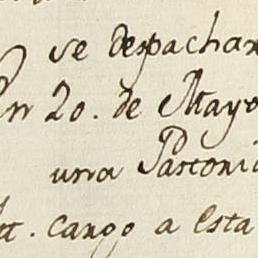 se despachar
En 20. de Mayo
una Patconi
tt. cargo a esta